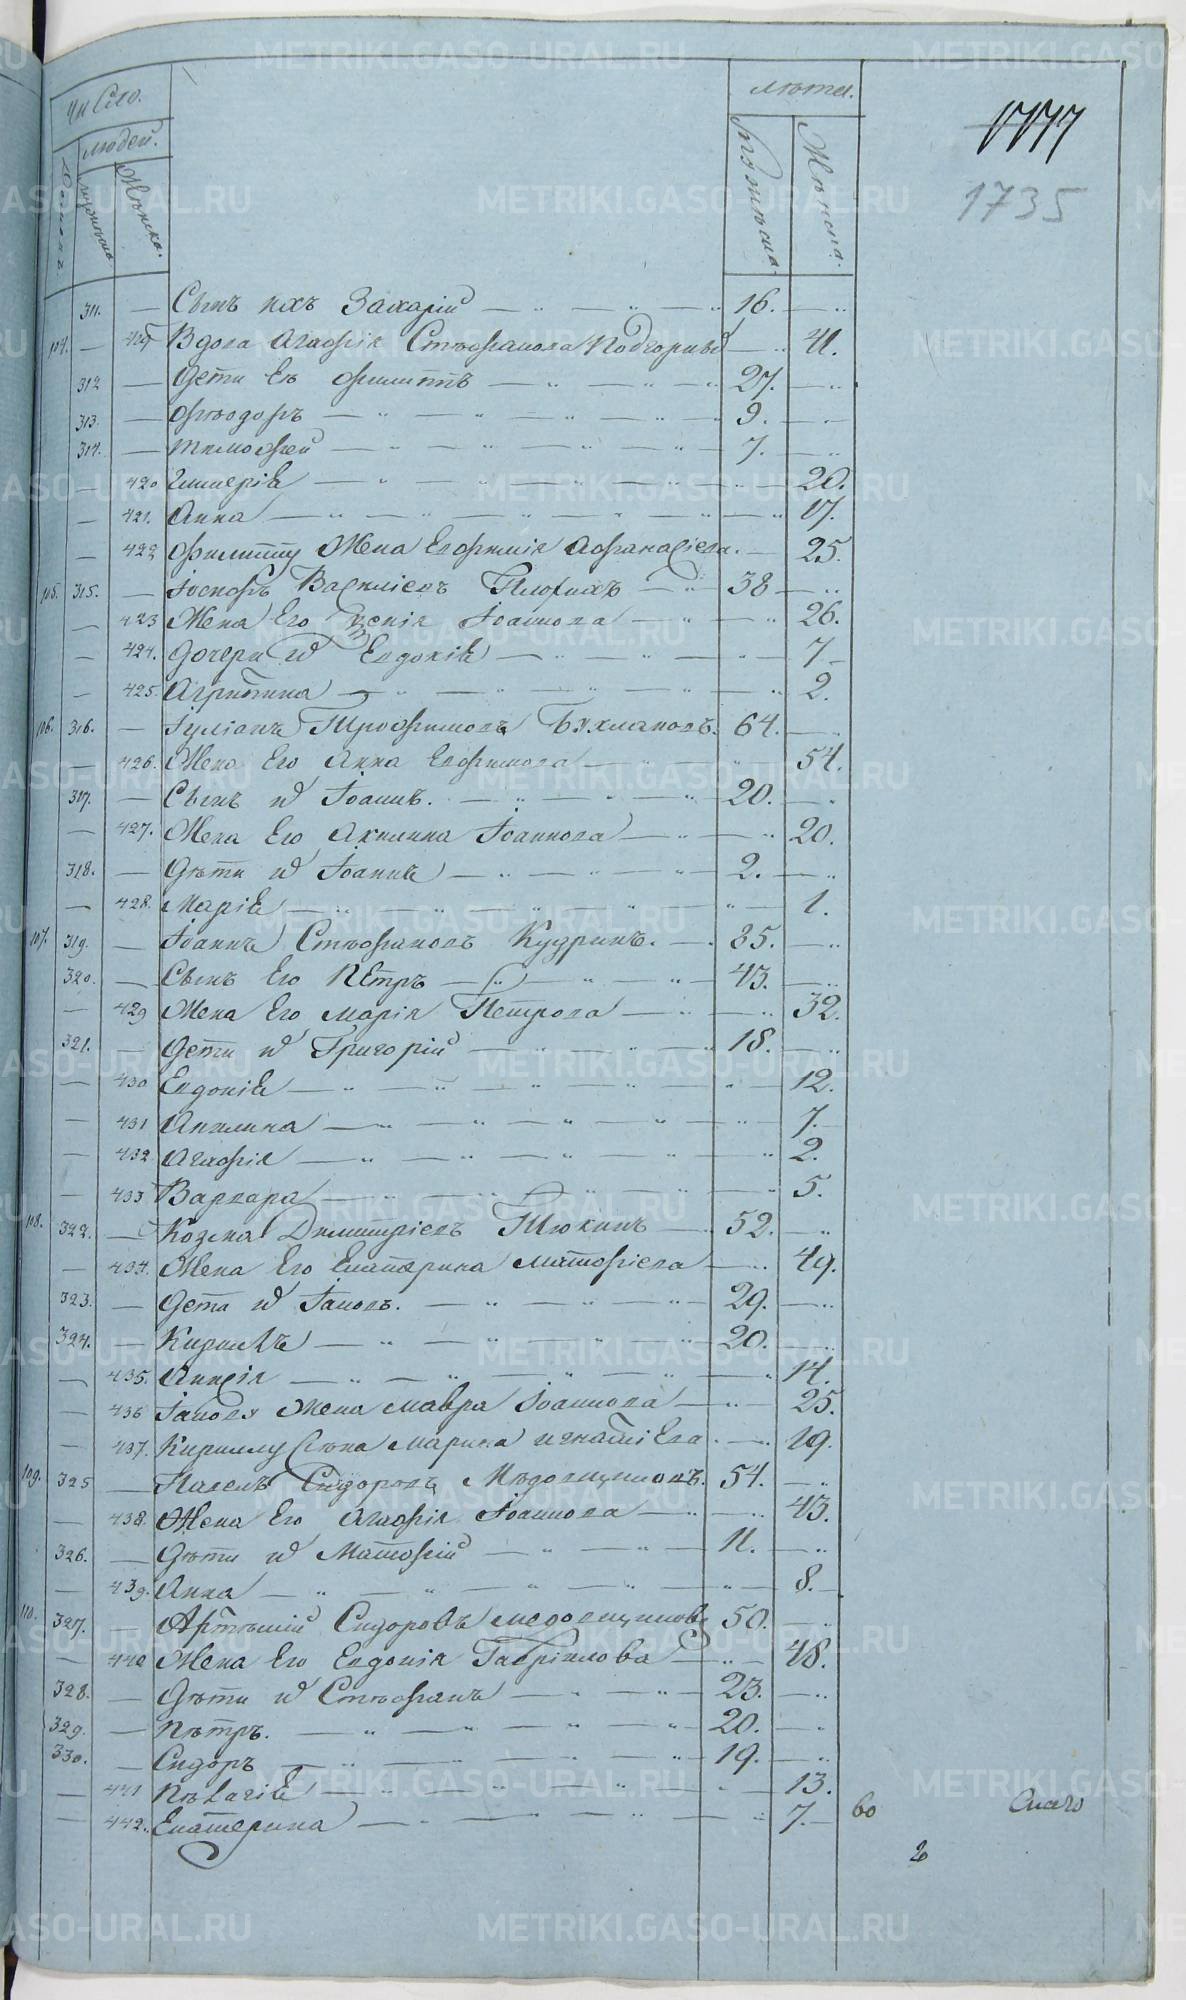 Число. Лѣта.
людей.
Мужеска Женска. Мужеска. Женска.
1777
1735
311. — Сынъ ихъ Захарій 16.
104. — Вдова Агафія Стефанова Подгорныхъ 41.
312 — Дети Ея Филиппъ 27.
313. — Ѳеодоръ 9.
314. — Тимофей 7.
— 420 Гликерія 20.
— 421. Анна 17.
— 422 Филиппу Жена Евфимія Афанасіева. 25.
105. 315. — Іосифъ Василіевъ 38
— 423 Жена Его Ксенія Іоаннова 26.
— 424. Дочери ихъ Евдокія 7
— 425. Агрипина 2.
106. 316. — Іуліанъ Трофимовъ Бухмановъ. 64.
— 426. Жена Его Анна Ефимова 54.
317. — Сынъ ихъ Іоаннъ. 20.
— 427. Жена Его Акилина Іоаннова 20.
318. — Дѣти ихъ Іоаннъ 2.
— 428. Марія 1.
107. 319. — Іоаннъ Стефановъ Кудринъ. 85.
320. — Сынъ Его Петръ 43.
— 429 Жена Его Марія Петрова 32.
321. — Дети ихъ Григорій 18.
— 430 Евдокія 12.
— 431 Акилина 7.
— 432 Агафія 2.
— 433 Варвара 5.
108. 322. — Козма Димитріевъ Тюкинъ 52.
— 434. Жена Его Екатерина Матфіева 49.
323. — Дети ихъ Іаковъ. 29.
324. — Кириллъ 20.
— 435. Анисія 14.
— 436 Іакову Жена Мавра Іоаннова 25.
— 437. Кириллу Жена Марина Игнатіева 19.
109. 325 — Павелъ Сидоровъ Мѣдовщиковъ. 54.
— 438. Жена Его Агафія Іоаннова 43.
326. — Дѣти ихъ Матфій 11.
— 439. Анна 8.
110. 327. — Артемій Сидоровъ Медовщиковъ 50.
— 440 Жена Его Евдокія Гавріилова 48.
328. — Дѣти ихъ Стефанъ 23.
329. — Петръ. 20.
330. — Сидоръ 19.
— 441 Пелагія 13.
— 442. Екатерина 7.